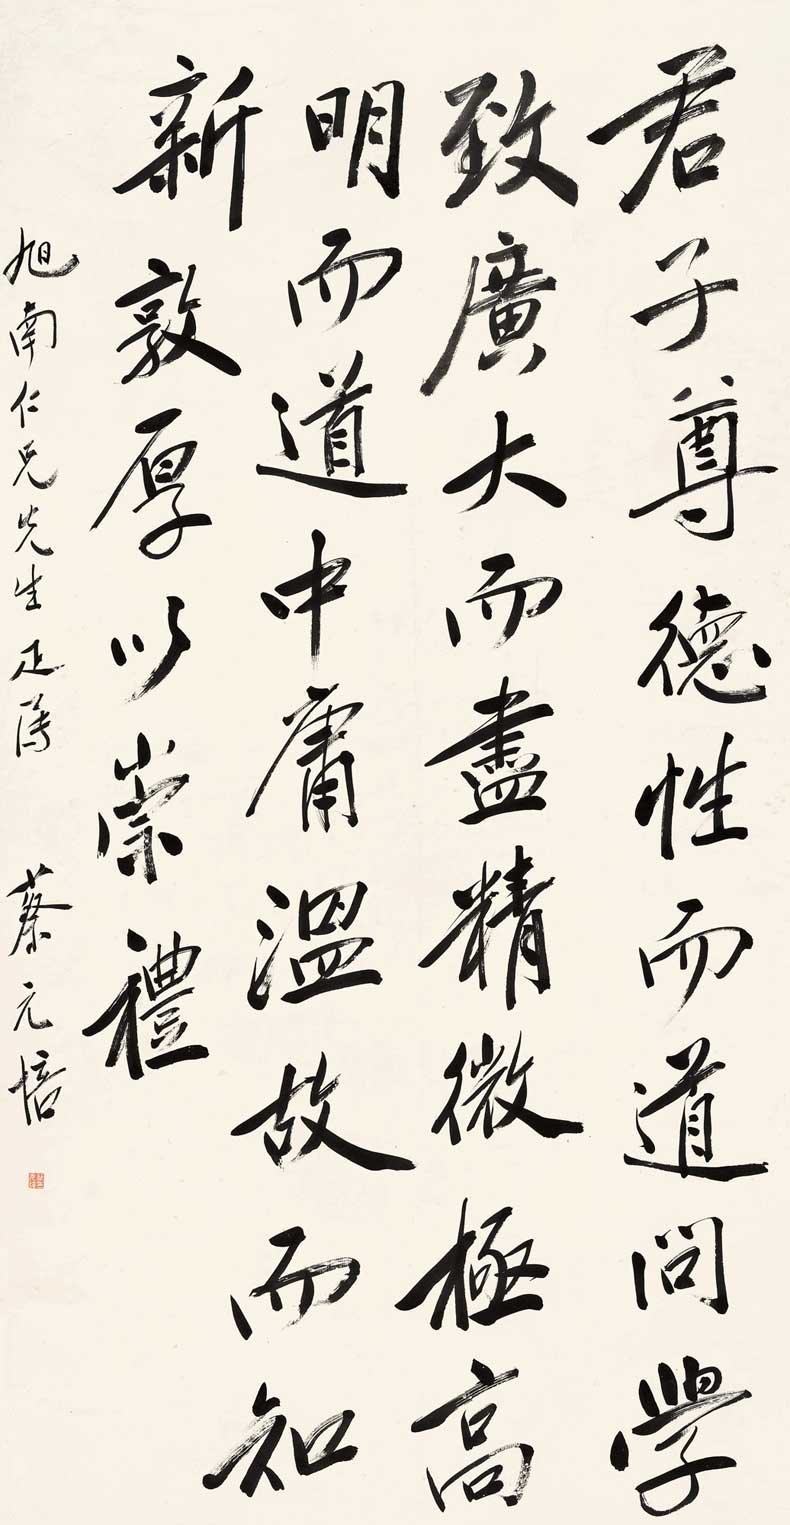 君子尊德性而道問學
致廣大而盡精微極高
明而道中庸溫故而知
新敦厚以崇禮
旭南仁兄先生正
蔡元培